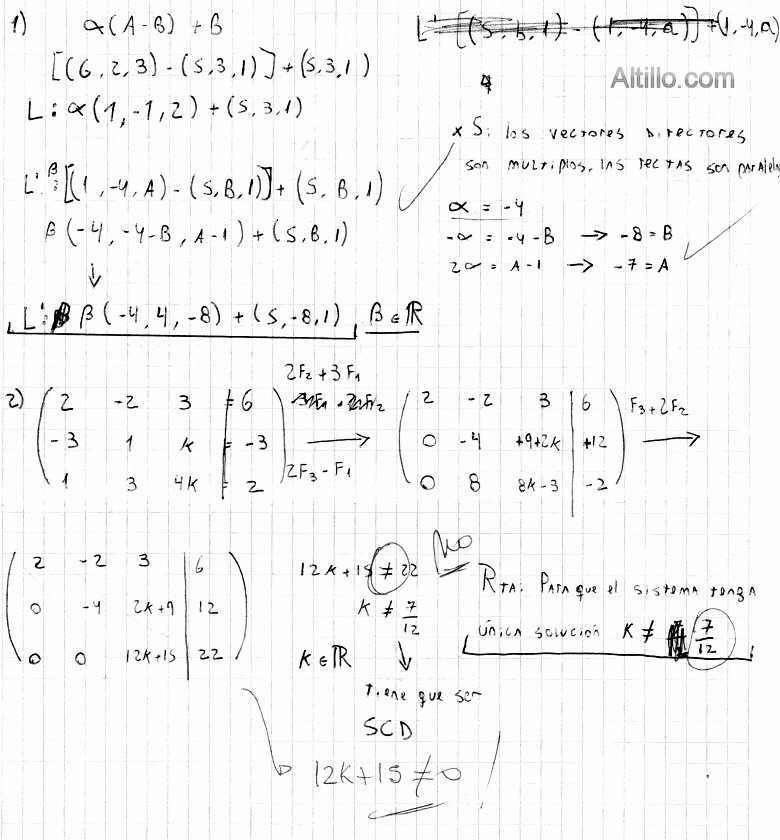 1) α(A-B) + B
[(6,2,3) - (5,3,1)] + (5,3,1)
L: α(1,-1,2) + (5,3,1)
L': β[(1,-4,A) - (5,B,1)] + (5,B,1)
β(-4,-4-B,A-1) + (5,B,1)
↓
L': β(-4,4,-8) + (5,-8,1) β ∈ ℝ
L' [(5,b,1) - (1,-4,a)] + (1,-4,a)
Altillo.com
* Si los vectores directores
son multiplos, las rectas son paralelas
α = -4
-α = -4-B → -8 = B
2α = A-1 → -7 = A
2) 2 -2 3 = 6
-3 1 K = -3
1 3 4K = 2
2F₂ + 3F₁
2F₃ - F₁
2 -2 3 | 6
0 -4 +9+2K | +12
0 8 8K-3 | -2
F₃ + 2F₂
2 -2 3 | 6
0 -4 2K+9 | 12
0 0 12K+15 | 22
12K+15 ≠ 22
NO
K ≠ 7/12
K ∈ ℝ
↓
tiene que ser
SCD
12K+15 ≠ 0
Rta: Para que el sistema tenga
única solución K ≠ 7/12